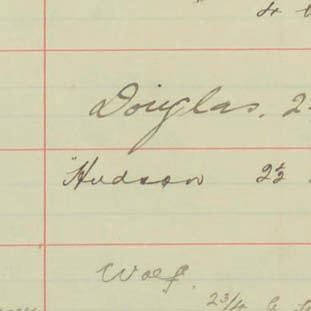 4
Douglas. 2
"Hudson 2½
Wolf.
2¾